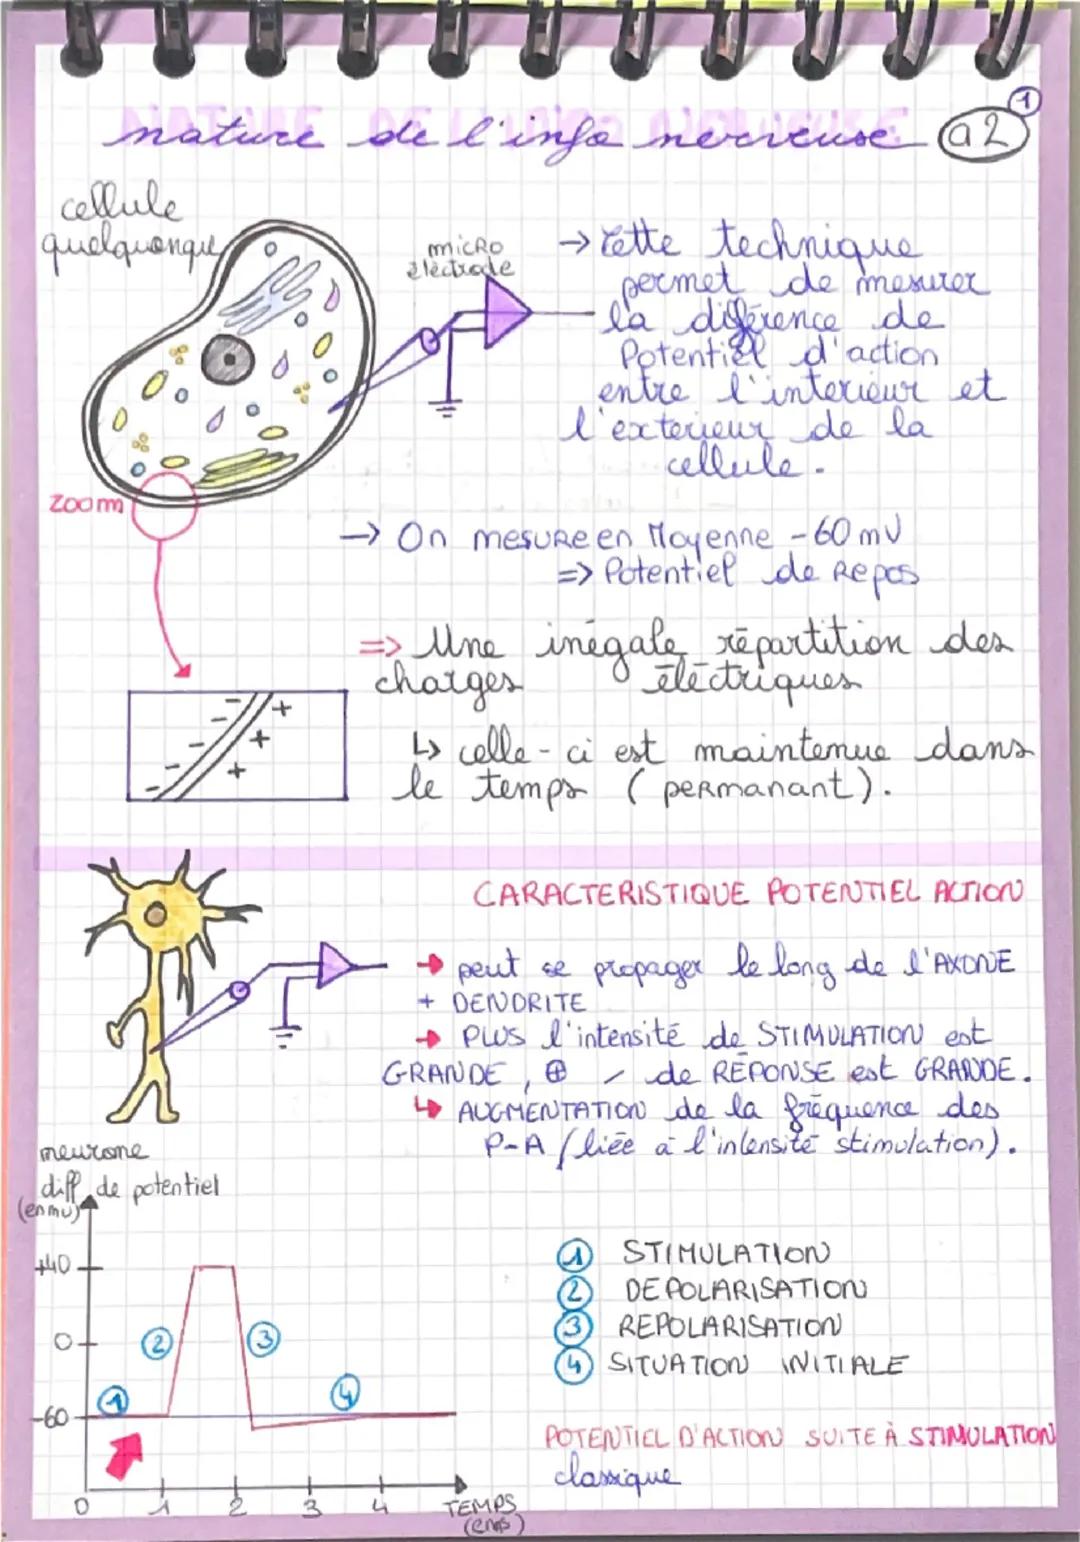 nature de l'info nerveuse a2 1
cellule
quelquonque
micro
électrode
→ cette technique
permet de mesurer
la différence de
Potentiel d'action
entre l'interieur et
l'exterieur de la
cellule.
Zoom
→ On mesure en Moyenne -60 mV
=> Potentiel de Repos
=> Une inégale répartition des
charges électriques
↳ celle-ci est maintenue dans
le temps (permanant).
- - - - -
+ + +
CARACTERISTIQUE POTENTIEL ACTION
→ peut se propager le long de l'AXONE
+ DENDRITE
→ PLUS l'intensité de STIMULATION est
GRANDE, ⊕ / de RÉPONSE est GRANDE.
↳ AUGMENTATION de la fréquence des
P-A (liée à l'intensité stimulation).
neurone
diff de potentiel
(en mv)
+40
0
-60
1
2
3
4
0 1 2 3 4
TEMPS
(en ms)
1 STIMULATION
2 DEPOLARISATION
3 REPOLARISATION
4 SITUATION INITIALE
POTENTIEL D'ACTION SUITE À STIMULATION
classique